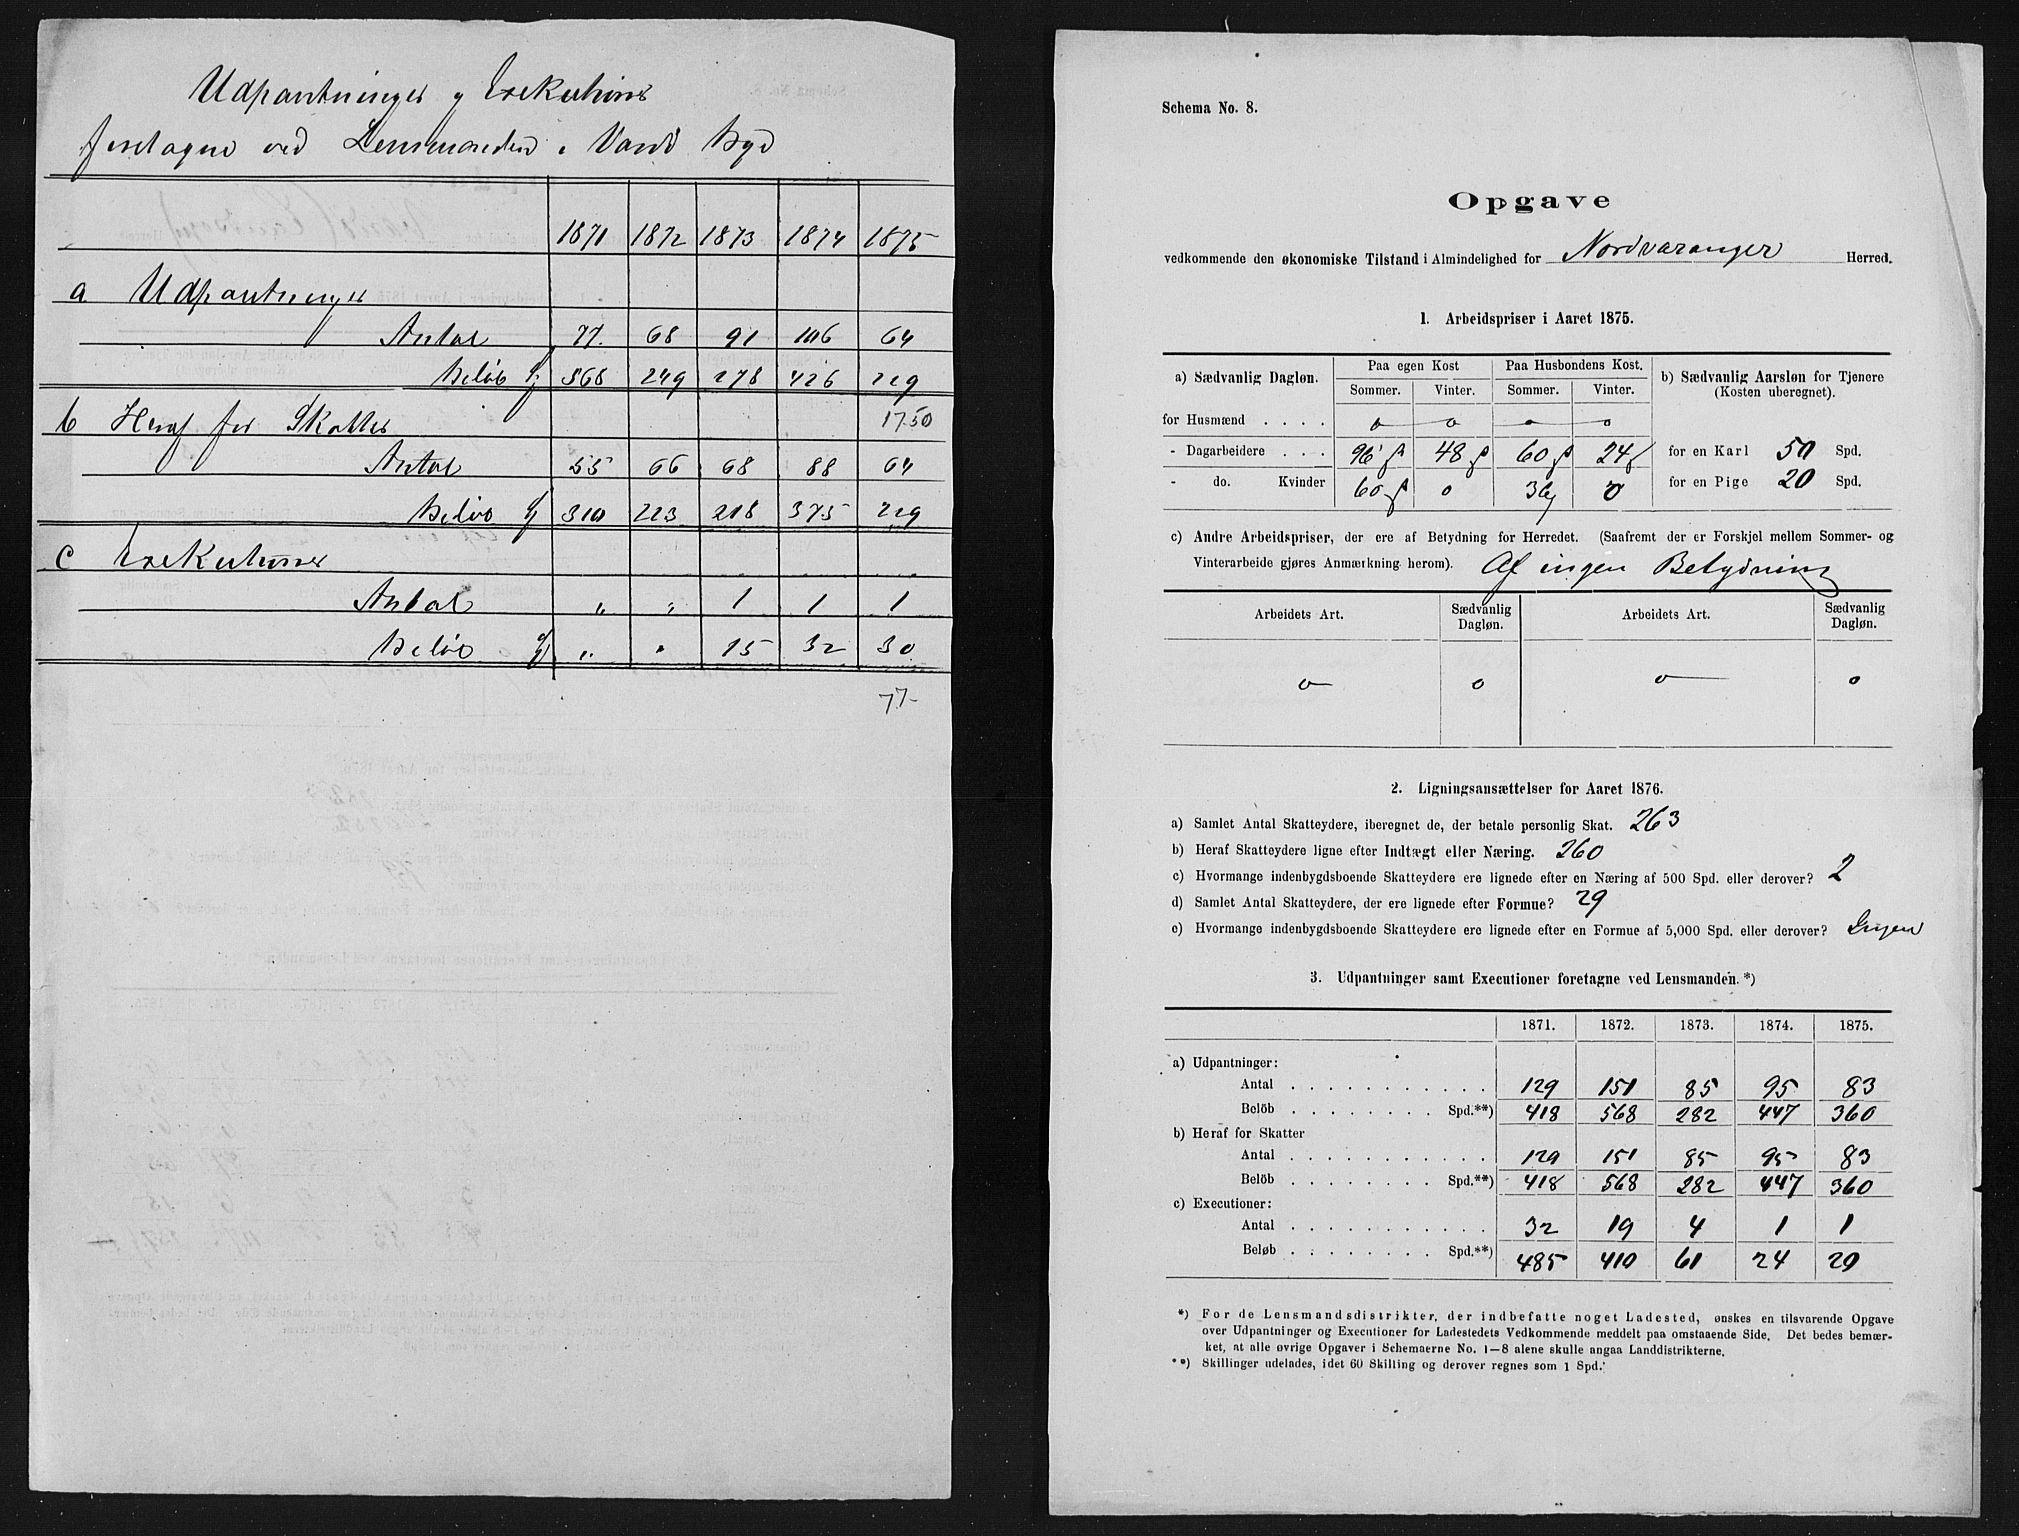 Udpantninger og Exekutioner
foretagne ved Lensmanden i Vardø Byd
1871 1872 1873 1874 1875
a Udpantninger
Antal 77. 68 91 106 64
Beløb 368 249 278 426 229
b Heraf for Skatter 17.50
Antal 55 66 68 88 64
Beløb 310 223 218 375 229
c Exekutioner
Antal " " 1 1 1
Beløb " " 15 32 30
77-
Schema No. 8.
Opgave
vedkommende den økonomiske Tilstand i Almindelighed for Nordvaranger Herred.
1. Arbeidspriser i Aaret 1875.
a) Sædvanlig Dagløn. Paa egen Kost Paa Husbondens Kost. b) Sædvanlig Aarsløn for Tjenere
Sommer. Vinter. Sommer. Vinter. (Kosten uberegnet).
for Husmænd . . . . o o o o
- Dagarbeidere . . . 96 β 48 β 60 β 24 β for en Karl 50 Spd.
- do. Kvinder 60 β o 36 o for en Pige 20 Spd.
c) Andre Arbeidspriser, der ere af Betydning for Herredet. (Saafremt der er Forskjel mellem Sommer- og
Vinterarbeide gjøres Anmærkning herom). Af ingen Betydning
Arbeidets Art. Sædvanlig Dagløn. Arbeidets Art. Sædvanlig Dagløn.
o o o o
2. Ligningsansættelser for Aaret 1876.
a) Samlet Antal Skatteydere, iberegnet de, der betale personlig Skat. 263
b) Heraf Skatteydere ligne efter Indtægt eller Næring. 260
c) Hvormange indenbygdsboende Skatteydere ere lignede efter en Næring af 500 Spd. eller derover? 2
d) Samlet Antal Skatteydere, der ere lignede efter Formue? 29
e) Hvormange indenbygdsboende Skatteydere ere lignede efter en Formue af 5,000 Spd. eller derover? Ingen
3. Udpantninger samt Executioner foretagne ved Lensmanden.*)
1871. 1872. 1873. 1874. 1875.
a) Udpantninger:
Antal . . . . . . . . . . . 129 151 85 95 83
Belöb . . . . . . . . Spd.**) 418 568 282 447 360
b) Heraf for Skatter
Antal . . . . . . . . . . . 129 151 85 95 83
Belöb . . . . . . . . Spd.**) 418 568 282 447 360
c) Executioner:
Antal . . . . . . . . . . . 32 19 4 1 1
Beløb . . . . . . . . Spd.**) 485 410 61 24 20
*) For de Lensmandsdistrikter, der indbefatte noget Ladested, ønskes en tilsvarende Opgave
over Udpantninger og Executioner for Ladestedets Vedkommende meddelt paa omstaaende Side. Det bedes bemær-
ket, at alle øvrige Opgaver i Schemaerne No. 1—8 alene skulle angaa Landdistrikterne.
**) Skillinger udelades, idet 60 Skilling og derover regnes som 1 Spd.